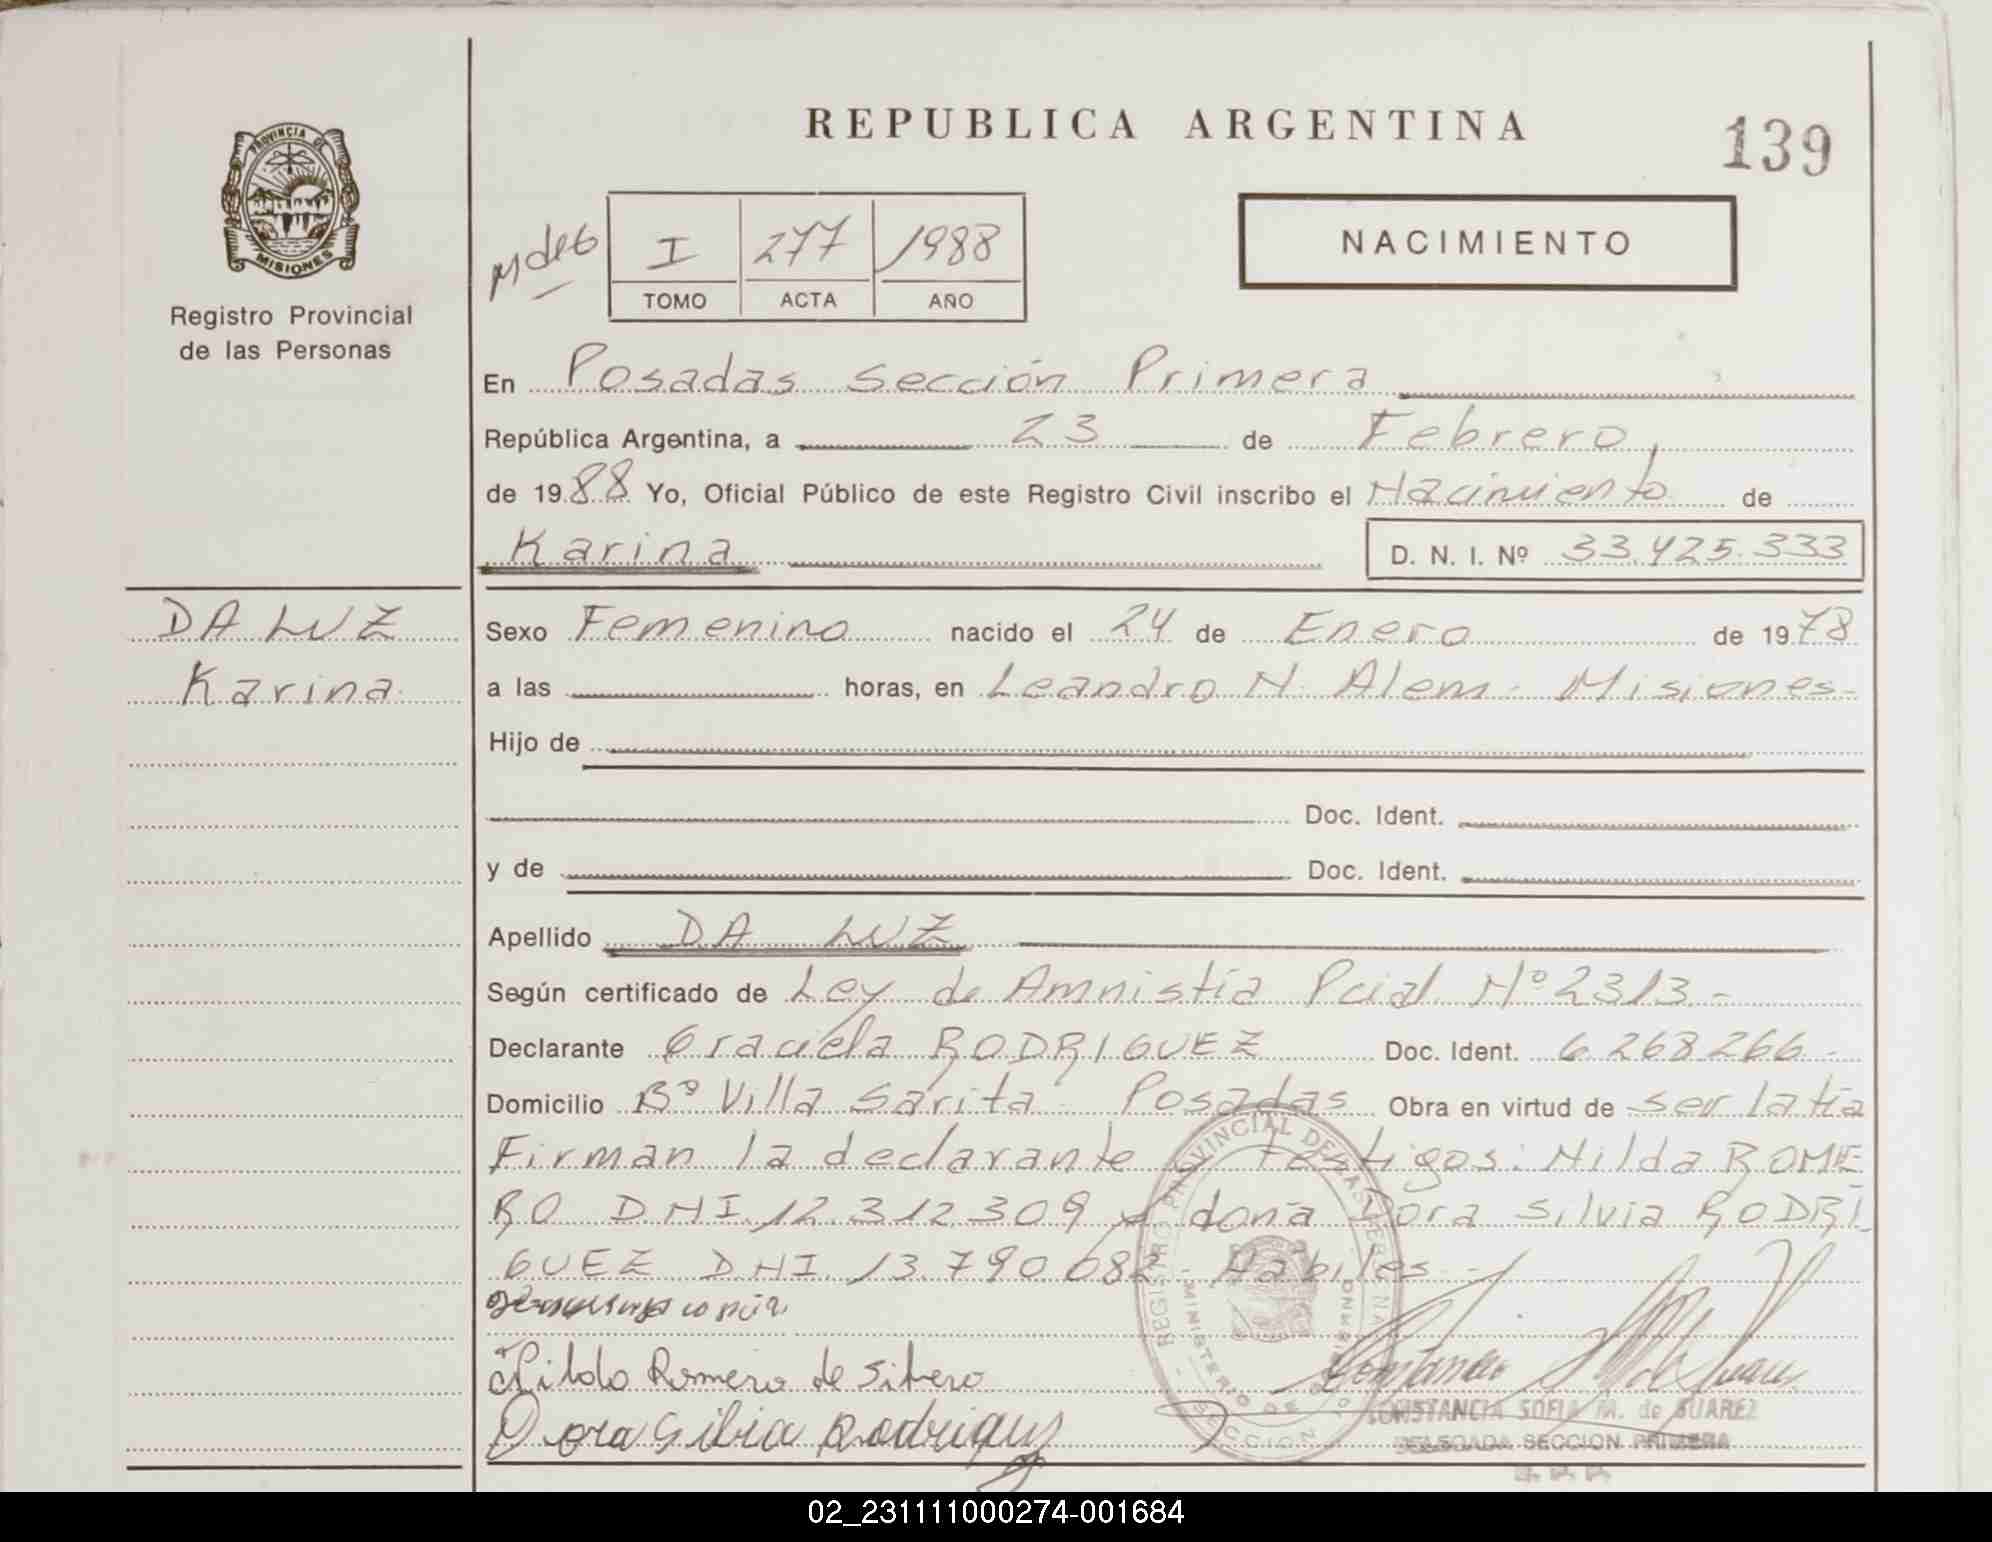 REPUBLICA ARGENTINA
139
PROVINCIA DE
MISIONES
Registro Provincial
de las Personas
I 277 1988
TOMO ACTA AÑO
NACIMIENTO
En Posadas Sección Primera
República Argentina, a 23 de Febrero,
de 1988 Yo, Oficial Público de este Registro Civil inscribo el Nacimiento de
Karina D. N. I. Nº 33.425.333
DA LUZ
Karina
Sexo Femenino nacido el 24 de Enero de 1978
a las horas, en Leandro N. Alem - Misiones -
Hijo de
Doc. Ident.
y de Doc. Ident.
Apellido DA LUZ
Según certificado de Ley de Amnistía Pcial. Nº 2313 -
Declarante Graciela RODRIGUEZ Doc. Ident. 6.268.266 -
Domicilio Bº Villa Sarita - Posadas Obra en virtud de ser la tía
Firman la declarante y testigos: Nilda ROME
RO DNI. 12.312.309 y doña Dora Silvia RODRI
GUEZ DNI. 13.790.682 - Hábiles -
Romero de
Dora Silvia Rodriguez
REGISTRO PROVINCIAL DE LAS PERSONAS
MINISTERIO DE GOBIERNO
SECCION
CONSTANCIA SOFIA M. de SUAREZ
DELEGADA SECCION PRIMERA
02_231111000274-001684